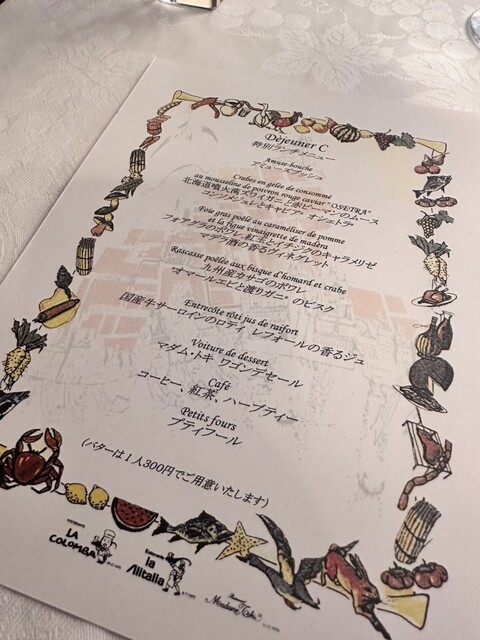 Déjeuner C
特別ランチメニュー
Amuse-bouche
アミューズブッシュ
Crabes en gelée de consommé
au mousseline de poivron rouge caviar "OSETRA"
北海道噴火湾ズワイガニと赤ピーマンのムース
コンソメジュレとキャビア オシェトラ
Foie gras poêlé au caraméliser de pomme
et la figue vinaigrette de madèra
フォアグラのポワレ 紅玉とイチジクのキャラメリゼ
マデラ酒の香るヴィネグレット
Rascasse poêlée aux bisque d'homard et crabe
九州産カサゴのポワレ
"オマールエビと渡りガニ"のビスク
Entrecôte rôti jus de raifort
国産牛サーロインのロティ レフォールの香るジュ
Voiture de dessert
マダム・トキ ワゴンデセール
Café
コーヒー、紅茶、ハーブティー
Petits fours
プティフール
(バターは1人300円でご用意いたします)
LA COLOMBA
la Alitalia
Madame Toki